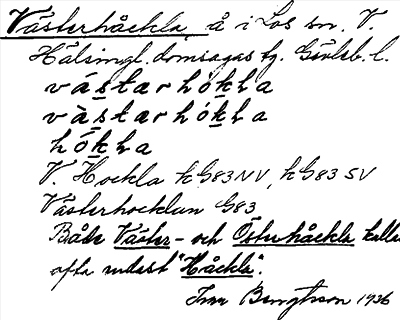 Västerhåckla, å i Los sn. V.
Hälsingl. domsagas tg. Gävleb. l.
västarhókha
vàstarhókha
hókha
V. Hockla k G83 NV, k G83 SV
Västerhocklan G83
Både Väster- och Österhåckla kallas
ofta endast "Håckla".
Bengtsson 1936